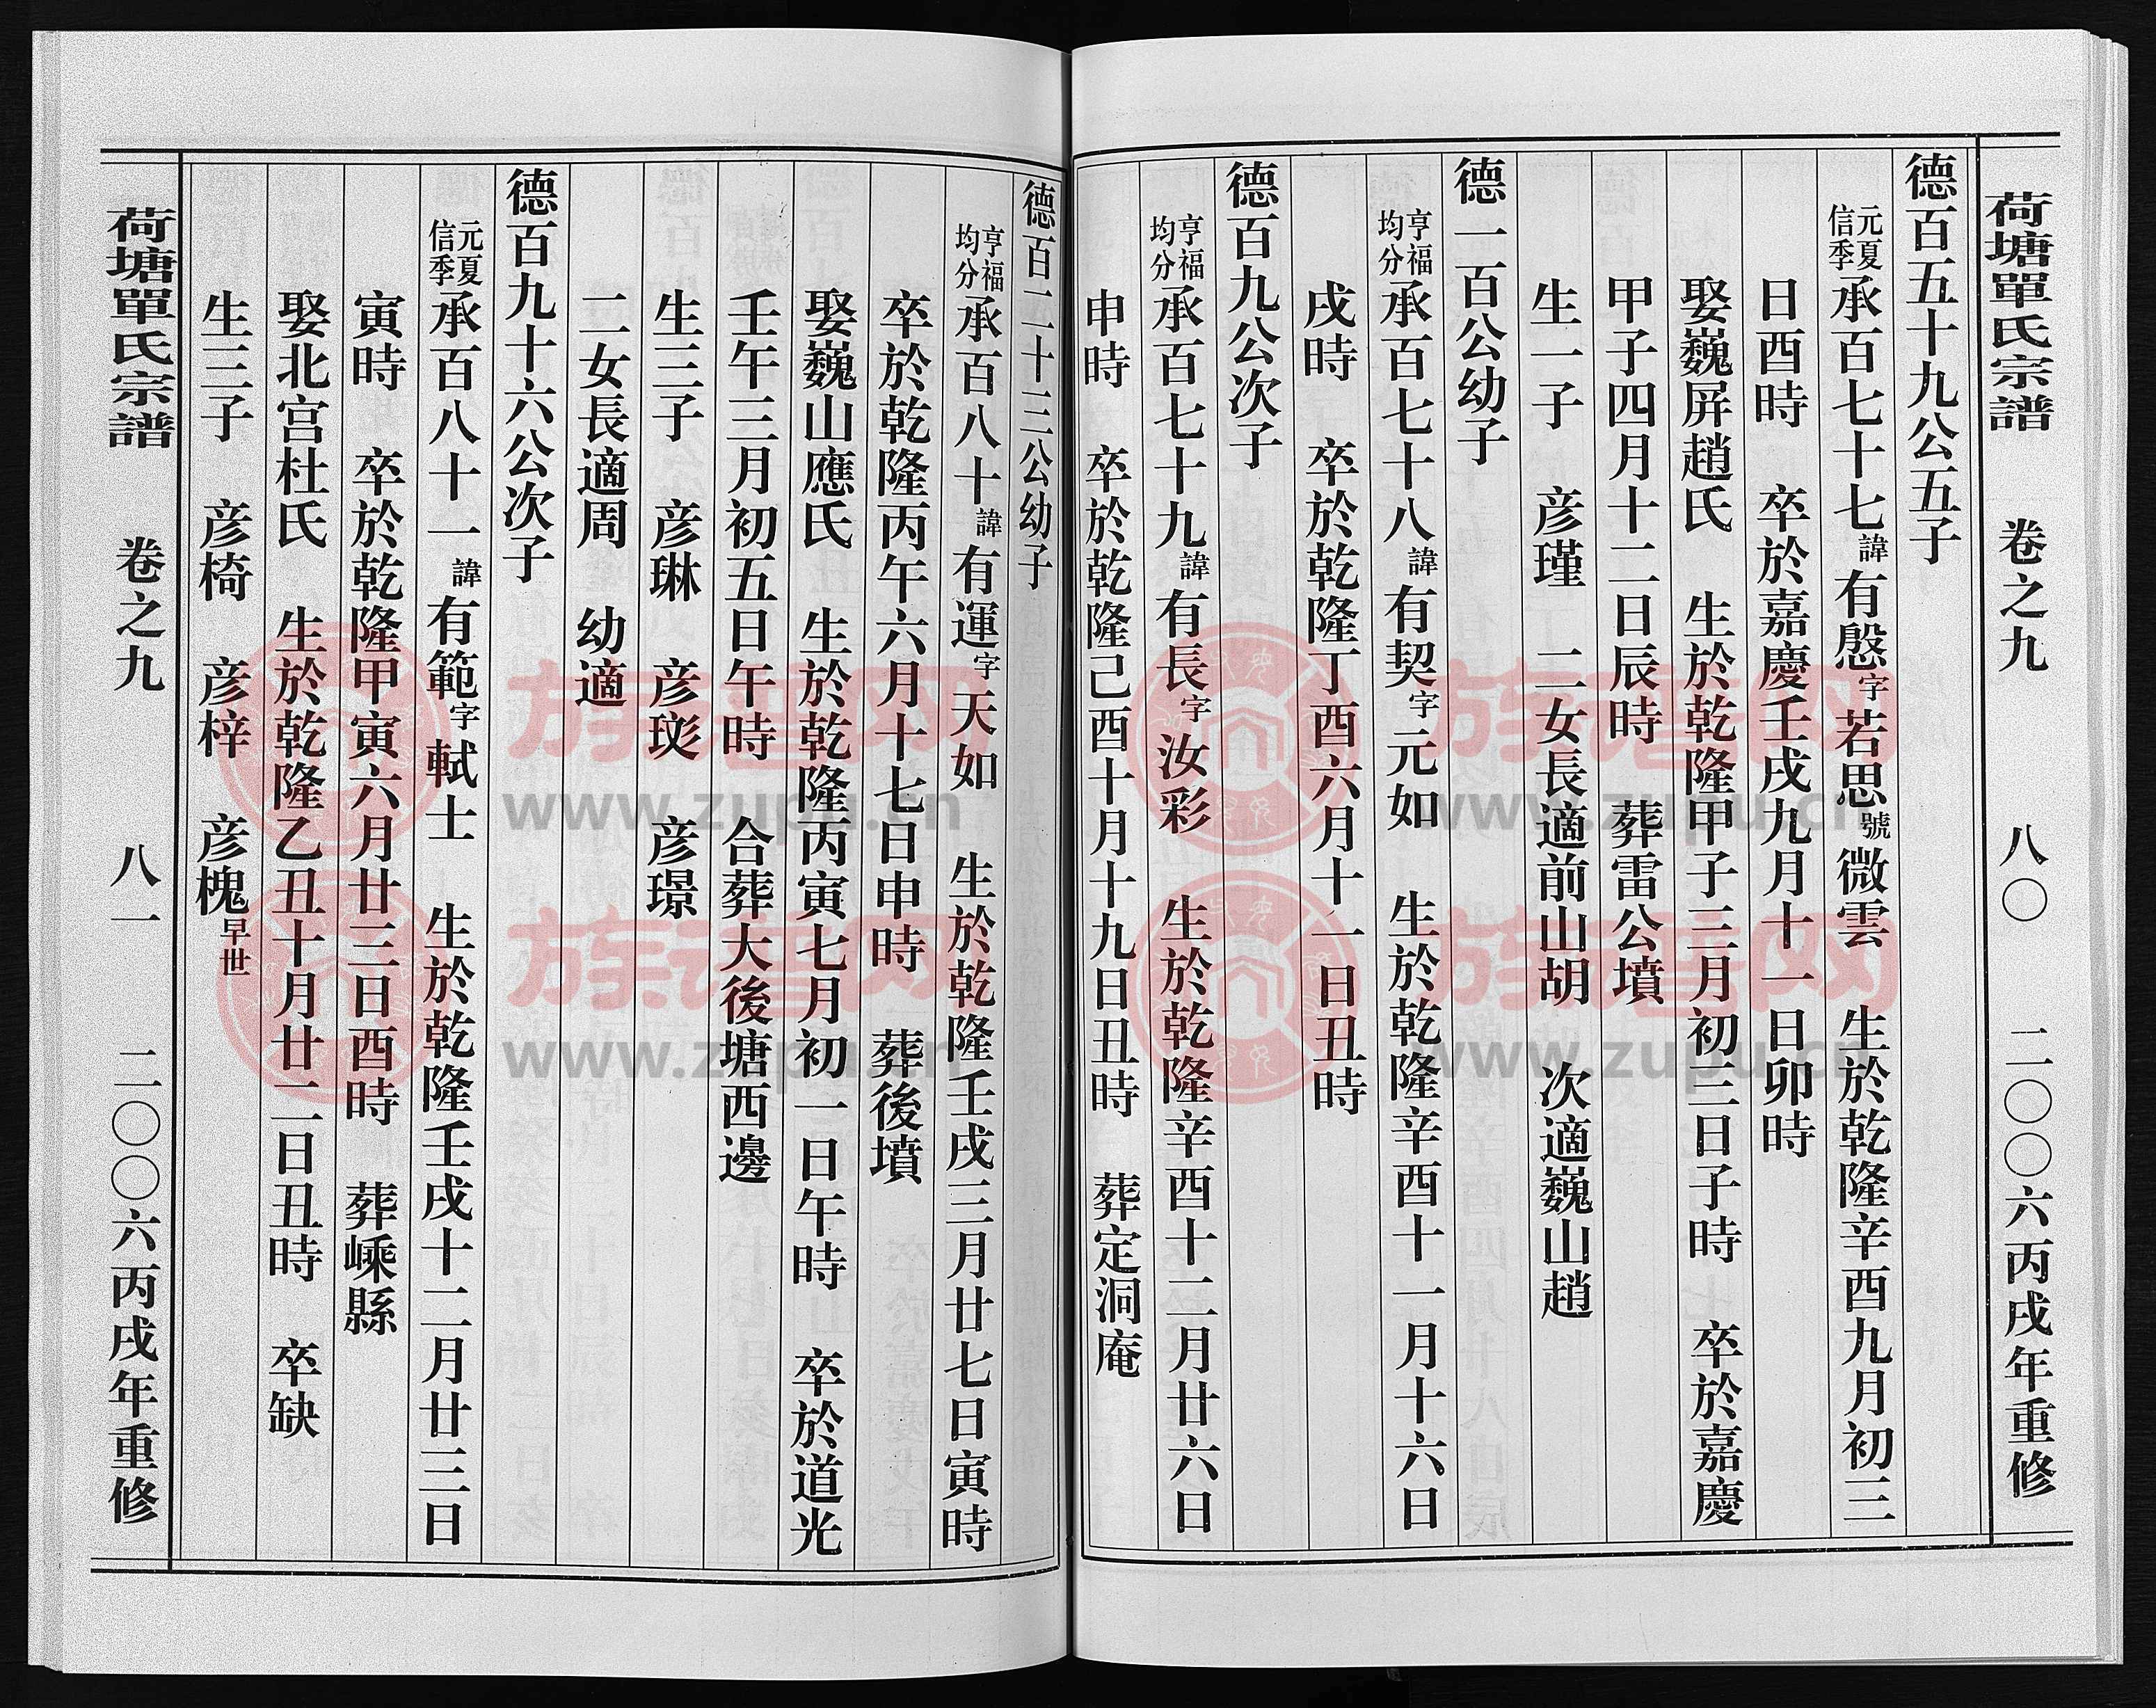 荷塘單氏宗譜 卷之九 八〇 二〇〇六丙戌年重修
德百五十九公五子
元夏信季承百七十七諱有慇字若思號微雲 生於乾隆辛酉九月初三
日酉時 卒於嘉慶壬戌九月十一日卯時
娶巍屏趙氏 生於乾隆甲子三月初三日子時 卒於嘉慶
甲子四月十二日辰時 葬雷公墳
生一子 彦瑾 二女長適前山胡 次適巍山趙
德一百公幼子
亨福均分承百七十八諱有契字元如 生於乾隆辛酉十一月十六日
戌時 卒於乾隆丁酉六月十一日丑時
德百九公次子
亨福均分承百七十九諱有長字汝彩 生於乾隆辛酉十二月廿六日
申時 卒於乾隆己酉十月十九日丑時 葬定洞庵
德百二十三公幼子
亨福均分承百八十諱有運字天如 生於乾隆壬戌三月廿七日寅時
卒於乾隆丙午六月十七日申時 葬後墳
娶巍山應氏 生於乾隆丙寅七月初一日午時 卒於道光
壬午三月初五日午時 合葬大後塘西邊
生三子 彦琳 彦琰 彦璟
二女長適周 幼適
德百九十六公次子
元夏信季承百八十一諱有範字軾士 生於乾隆壬戌十二月廿三日
寅時 卒於乾隆甲寅六月廿三日酉時 葬嵊縣
娶北宫杜氏 生於乾隆乙丑十月廿二日丑時 卒缺
生三子 彦椅 彦梓 彦槐早世
荷塘單氏宗譜 卷之九 八一 二〇〇六丙戌年重修
族谱网 www.zupu.cn
族谱网 www.zupu.cn
族谱网 www.zupu.cn
族谱网 www.zupu.cn